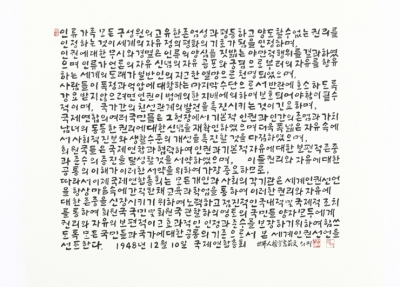 인류가족 모든 구성원의 고유한 존엄성과 평등하고 양도할 수 없는 권리를
인정하는 것이 세계의 자유, 정의, 평화의 기초가 됨을 인정하며,
인권에 대한 무시와 경멸은 인류의 양심을 짓밟는 야만적 행위를 결과하였
으며 인류가 언론의 자유, 신념의 자유, 공포와 궁핍으로부터의 자유를 향유
하는 세계의 도래가 일반인의 지고한 열망으로 천명되었으며,
사람들이 폭정과 억압에 대항하는 마지막 수단으로서 반란에 호소하도록
강요받지 않으려면 인권이 법에 의한 지배에 의하여 보호되어야 함이 필수
적이며, 국가간의 친선관계의 발전을 촉진시키는 것이 긴요하며,
국제연합의 여러 국민들은 그 헌장에서 기본적 인권과 인간의 존엄과 가치
남녀의 동등한 권리에 대한 신념을 재확인하였으며 더욱 폭넓은 자유 속에
서 사회적 진보와 생활수준의 개선을 촉진할 것을 다짐하였으며,
회원국들은 국제연합과 협력하여 인권과 기본적 자유에 대한 보편적 존중
과 준수의 증진을 달성할 것을 서약하였으며, 이들 권리와 자유에 대한
공통의 이해가 이러한 서약을 위하여 가장 중요하므로,
따라서 이제 국제연합 총회는 모든 개인과 사회의 각 기관은 세계인권선언
을 항상 마음에 간직한 채 교육과 학업을 통하여 이러한 권리와 자유에
대한 존중을 신장시키기 위하여 노력하고 점진적인 국내적 및 국제적 조치
를 통하여 회원국 국민 및 회원국 관할하의 영토의 국민들 양자 모두에게
권리와 자유의 보편적이고 효과적인 인정과 준수를 보장하기 위하여 힘쓰
도록 모든 국민들과 국가에 대한 공통의 기준으로서 본 세계인권선언을
선포한다. 1948년 12월 10일 국제연합총회